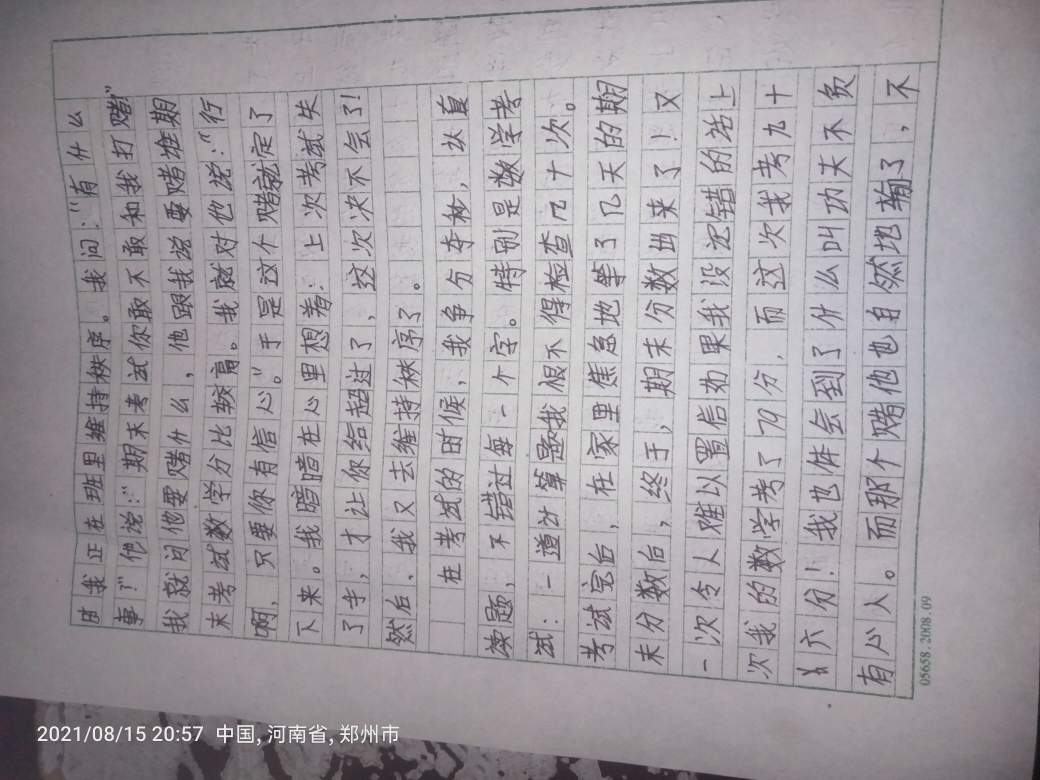 时我正在班里维持秩序。我问：“有什么
事？”他说：“期末考试你敢不敢和我打赌”
我就问他要赌什么，他跟我说要赌谁期
末考试数学分比较高。我就对他说：“行
啊，只要你有信心。”于是这个赌就定了
下来。我暗暗在心里想着：上次考试失
了手，才让你给超过了，这次决不会了！
然后，我又去维持秩序了。
在考试的时候，我争分夺秒，认真
读题，不错过每一个字。特别是数学考
试：一道计算题我恨不得检查几十次。
考试完后，在家里焦急地等了几天的期
末分数后，终于，期末分数出来了！又
一次令人难以置信如果我没记错的话上
次我的数学考了79分，而这次我考九十
六分！我也体会到了什么叫功夫不负
有心人。而那个赌他也自然地输了，不
05658.2008.09
2021/08/15 20:57 中国,河南省,郑州市